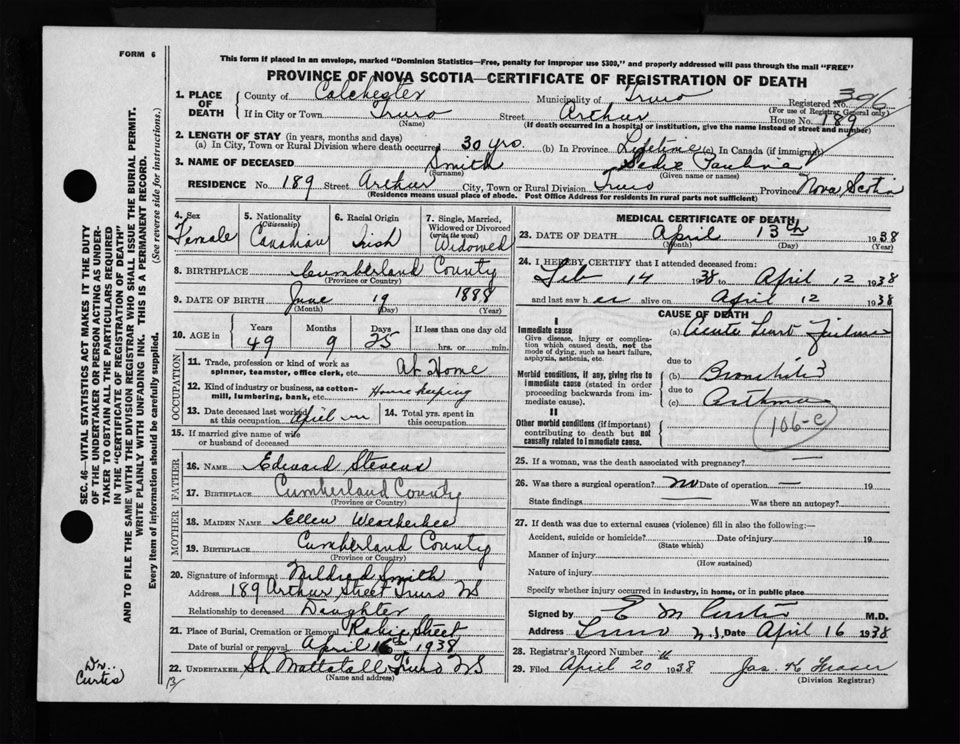 FORM 6
This form if placed in an envelope, marked "Dominion Statistics—Free, penalty for improper use $300," and properly addressed will pass through the mail "FREE"
PROVINCE OF NOVA SCOTIA—CERTIFICATE OF REGISTRATION OF DEATH
1. PLACE OF DEATH { County of Colchester Municipality of Truro Registered No. 396
(For use of Registrar General only)
If in City or Town Truro Street Arthur House No. 189
(Name) (If death occurred in a hospital or institution, give the name instead of street and number)
2. LENGTH OF STAY (in years, months and days)
(a) In City, Town or Rural Division where death occurred 30 yrs. (b) In Province Lifetime (c) In Canada (if immigrant)
3. NAME OF DECEASED Smith Sadie Paulina
(Surname) (Given name or names)
RESIDENCE No. 189 Street Arthur City, Town or Rural Division Truro Province Nova Scotia
(Residence means usual place of abode. Post Office Address for residents in rural parts not sufficient)
4. Sex Female
5. Nationality (Citizenship) Canadian
6. Racial Origin Irish
7. Single, Married, Widowed or Divorced (write the word) Widowed
8. BIRTHPLACE Cumberland County
(Province or Country)
9. DATE OF BIRTH June 19 1888
(Month) (Day) (Year)
10. AGE in Years 49 Months 9 Days 25 If less than one day old hrs. or min.
OCCUPATION
11. Trade, profession or kind of work as spinner, teamster, office clerk, etc. At Home
12. Kind of industry or business, as cotton-mill, lumbering, bank, etc. House keeping
13. Date deceased last worked at this occupation April
14. Total yrs. spent in this occupation
15. If married give name of wife or husband of deceased
FATHER
16. NAME Edward Stevens
17. BIRTHPLACE Cumberland County
(Province or Country)
MOTHER
18. MAIDEN NAME Ellen Weatherbee
19. BIRTHPLACE Cumberland County
(Province or Country)
20. Signature of informant Mildred Smith
Address 189 Arthur Street Truro NS
Relationship to deceased Daughter
21. Place of Burial, Cremation or Removal Robie Street
Date of burial or removal April 16th 1938
22. UNDERTAKER Mattatall Truro NS
(Name and address)
MEDICAL CERTIFICATE OF DEATH
23. DATE OF DEATH April 13th 1938
(Month) (Day) (Year)
24. I HEREBY CERTIFY that I attended deceased from:
Feb 14 1938 to April 12 1938
and last saw her alive on April 12 1938
CAUSE OF DEATH
I
Immediate cause (a) Acute Heart Failure
Give disease, injury or complication which caused death, not the mode of dying, such as heart failure, asphyxia, asthenia, etc.
due to
Morbid conditions, if any, giving rise to immediate cause (stated in order proceeding backwards from immediate cause).
(b) Bronchitis
due to
(c) Asthma
II
Other morbid conditions (if important) contributing to death but not causally related to immediate cause.
106-c
25. If a woman, was the death associated with pregnancy? —
26. Was there a surgical operation? no Date of operation — 19
State findings — Was there an autopsy?
27. If death was due to external causes (violence) fill in also the following:—
Accident, suicide or homicide? Date of injury 19
(State which)
Manner of injury
(How sustained)
Nature of injury
Specify whether injury occurred in industry, in home, or in public place
Signed by E M Curtis M.D.
Address Truro N.S. Date April 16 1938
28. Registrar's Record Number
29. Filed April 20th 1938 Jas. H Fraser
(Division Registrar)
SEC. 46—VITAL STATISTICS ACT MAKES IT THE DUTY
OF THE UNDERTAKER OR PERSON ACTING AS UNDER-
TAKER TO OBTAIN ALL THE PARTICULARS REQUIRED
IN THE "CERTIFICATE OF REGISTRATION OF DEATH"
AND TO FILE THE SAME WITH THE DIVISION REGISTRAR WHO SHALL ISSUE THE BURIAL PERMIT.
WRITE PLAINLY WITH UNFADING INK. THIS IS A PERMANENT RECORD.
Every item of information should be carefully supplied. (See reverse side for instructions.)
Dr.
Curtis